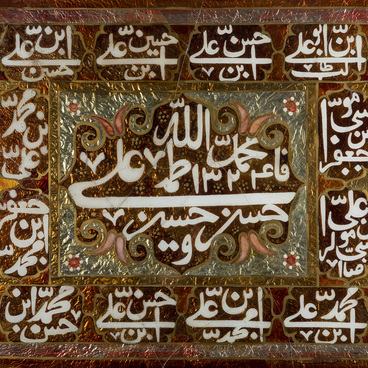 علی ابن ابوطالب
حسن ابن علی
حسین ابن علی
علی ابن حسین
محمد بن علی
جعفر ابن محمد
موسی بن جعفر
علی بن موسی
الله
محمد
علی فاطمه ۱۳۲۴
حسن و حسین
محمد ابن علی
علی بن محمد
حسن ابن علی
محمد ابن حسن